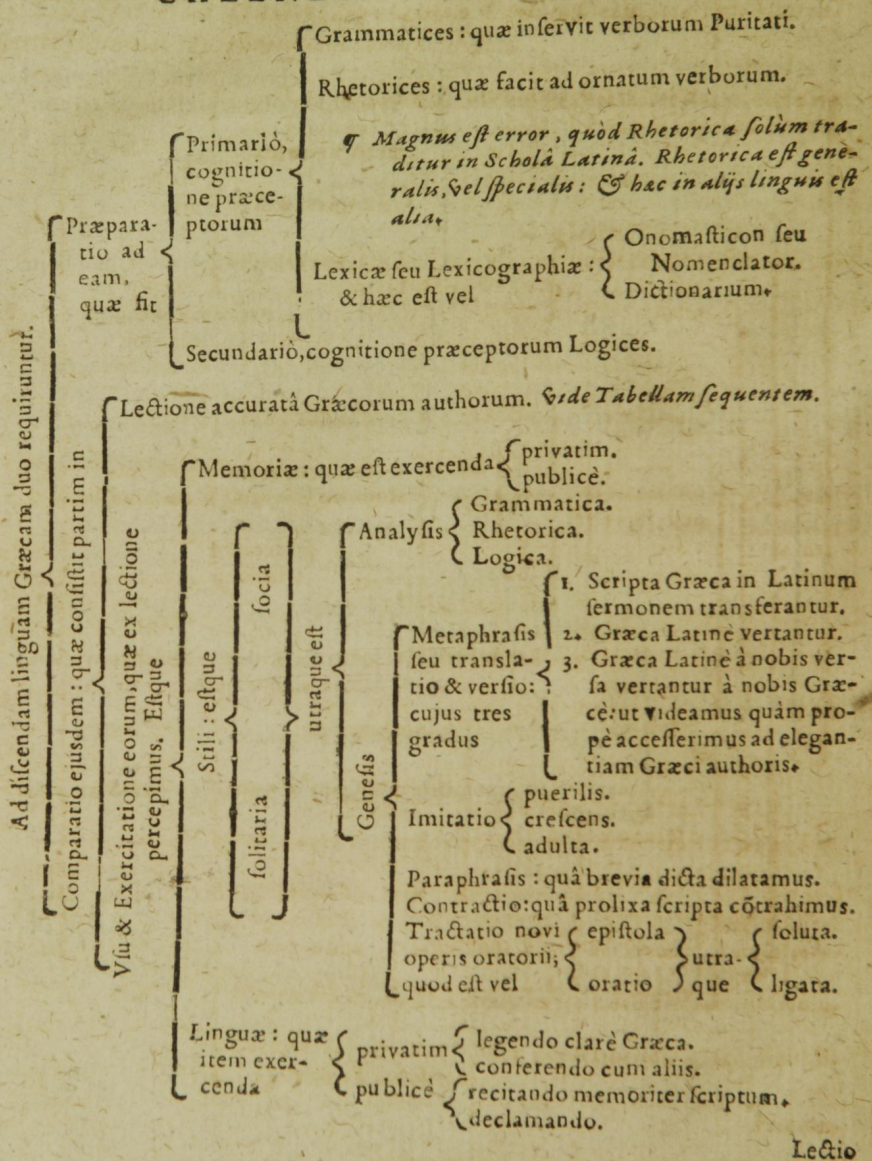 Ad discendam linguam Græcam duo requiruntur.
Præpara-
tio ad
eam,
quæ fit
Primariò,
cognitio-
ne præce-
ptorum
Grammatices : quæ inservit verborum Puritati.
Rhetorices : quæ facit ad ornatum verborum.
Magnus est error, quòd Rhetorica solùm tra-
ditur in Scholâ Latinâ. Rhetorica est gene-
ralis, vel specialis : & hæc in alijs linguis est
alia.
Lexicæ seu Lexicographiæ :
& hæc est vel
Onomasticon seu
Nomenclator.
Dictionarium.
Secundariò, cognitione præceptorum Logices.
Comparatio ejusdem : quæ consistit partim in
Lectione accuratâ Græcorum authorum. Vide Tabellam sequentem.
Vsu & Exercitatione eorum, quæ ex lectione
percepimus. Estque
Memoriæ : quæ est exercenda
privatim.
publicè.
Stili : estque
socia
solitaria
utraque est
Analysis
Grammatica.
Rhetorica.
Logica.
Genesis
Metaphrasis
seu transla-
tio & versio :
cujus tres
gradus
1. Scripta Græca in Latinum
sermonem transferantur.
2. Græca Latinè vertantur.
3. Græca Latinè à nobis ver-
sa vertantur à nobis Græ-
cè: ut videamus quàm pro-
pè accesserimus ad elegan-
tiam Græci authoris.
Imitatio
puerilis.
crescens.
adulta.
Paraphrasis : quâ brevia dicta dilatamus.
Contractio: quâ prolixa scripta cõtrahimus.
Tractatio novi
operis oratorii;
quod est vel
epistola
oratio
utra-
que
soluta.
ligata.
Linguæ : quæ
item exer-
cenda
privatim
legendo clarè Græca.
conferendo cum aliis.
publicè
recitando memoriter scriptum.
declamando.
Lectio